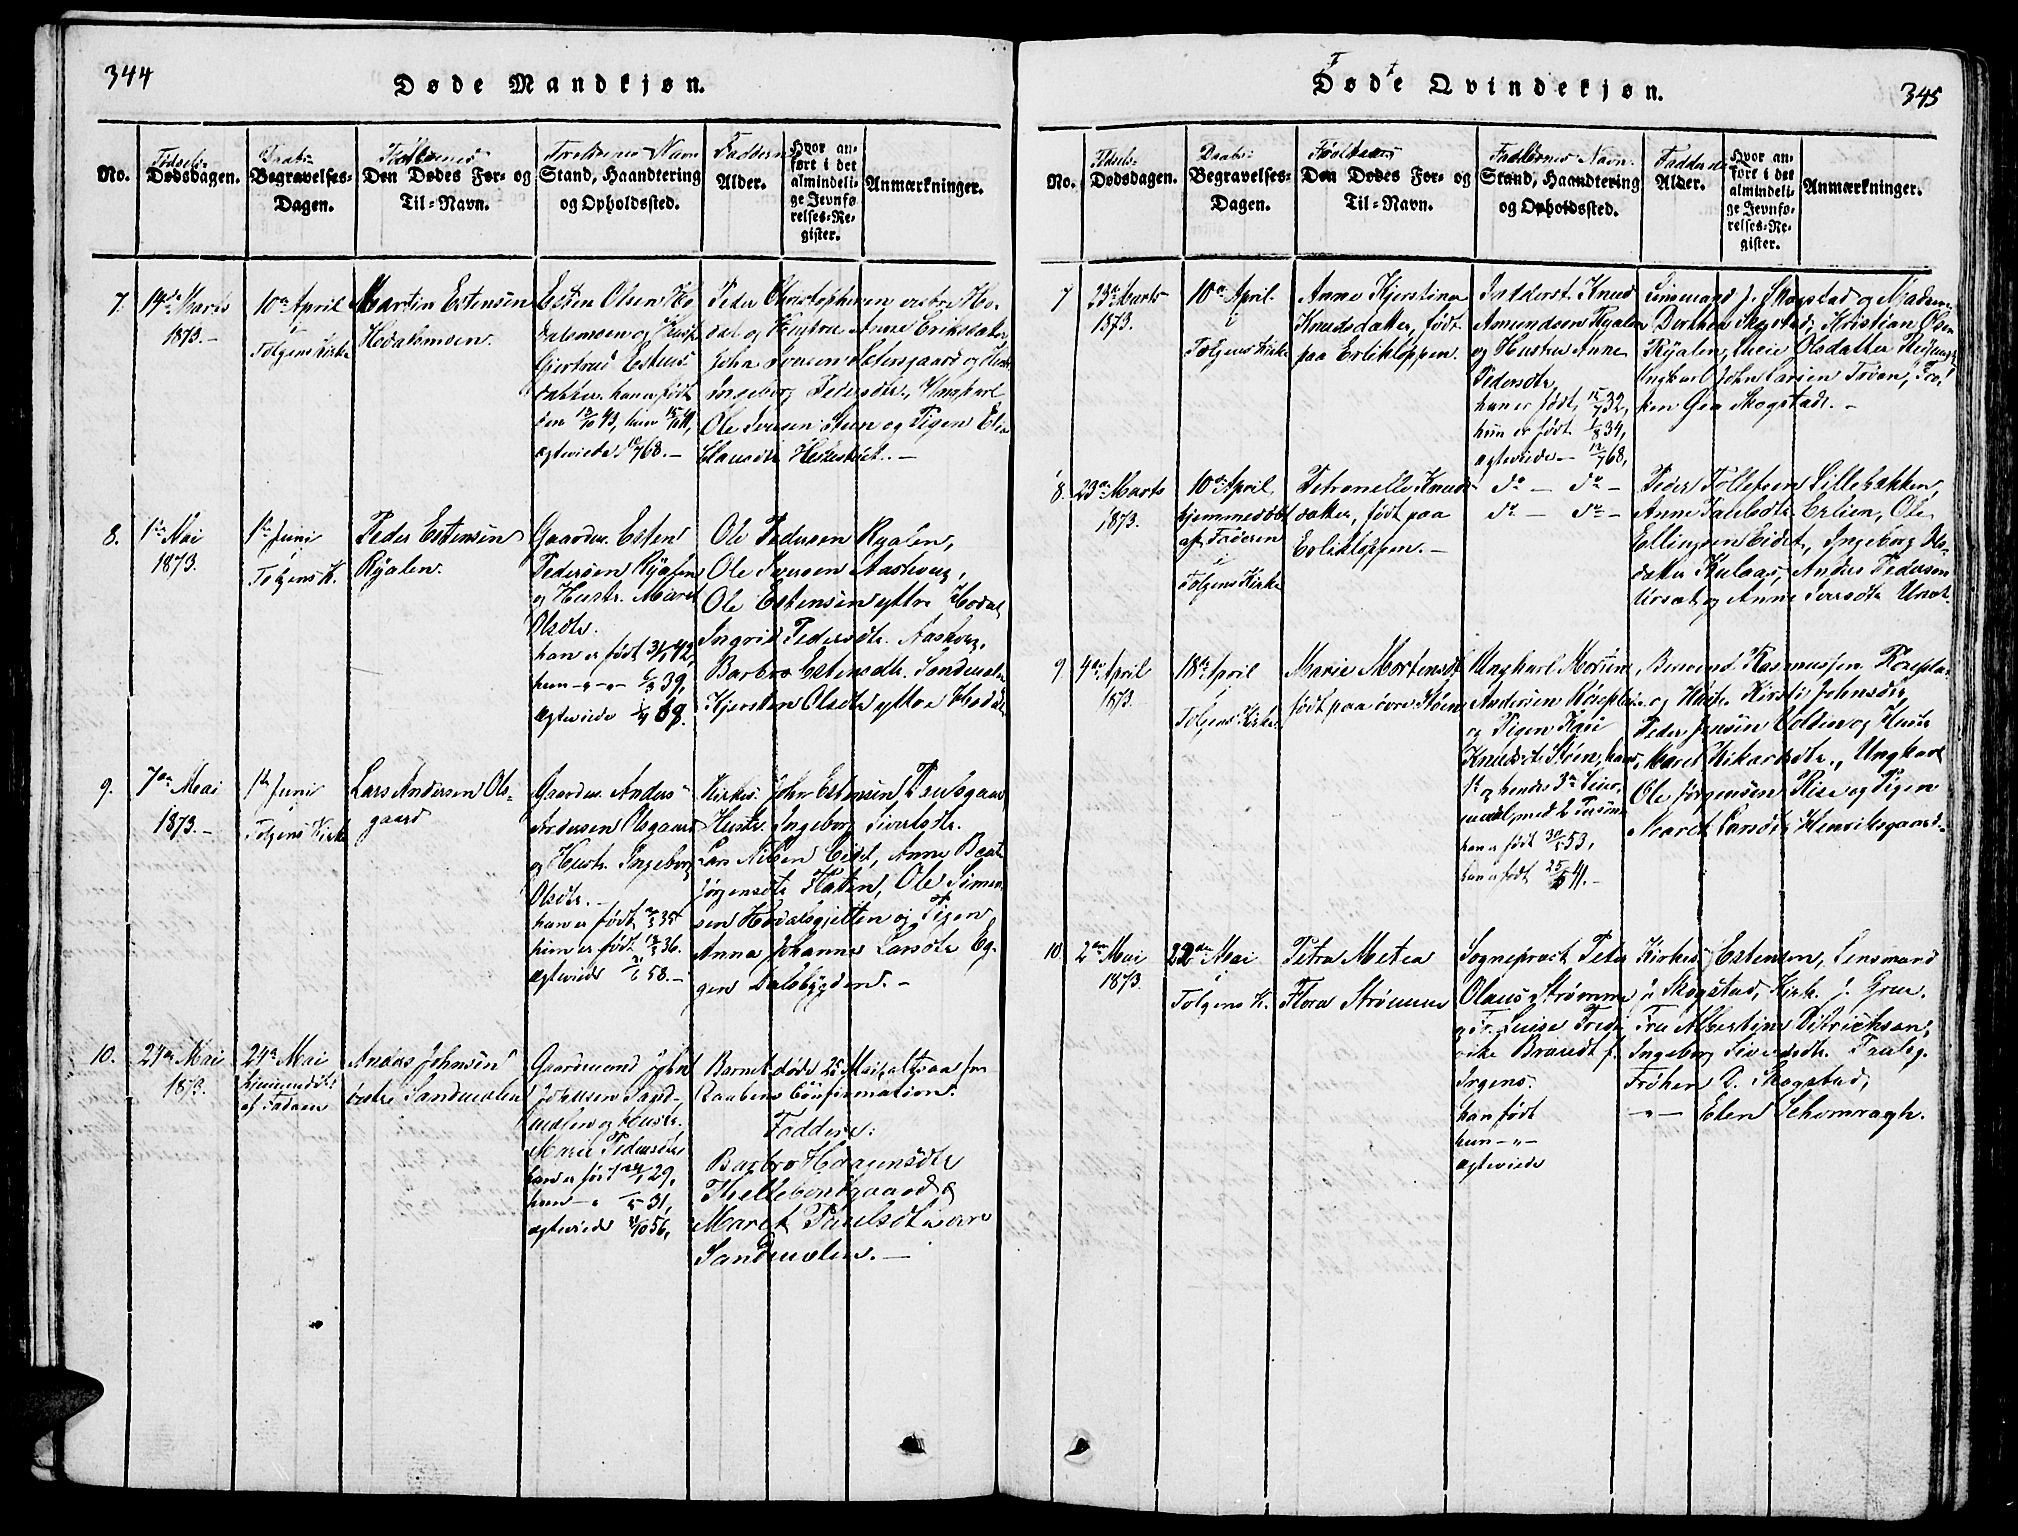 344
Døde Mandkjøn.
No.
Fødsels-
Dødsdagen.
Daabs-
Begravelses-
Dagen.
Den Dødes For- og
Til-Navn.
Forældrenes Navn
Stand, Haandtering
og Opholdssted.
Faddere
Alder.
Hvor an-
ført i det
almindeli-
ge Jevnfø-
relses-Re-
gister.
Anmærkninger.
7.
14de Marts
1873.-
10de April
i
Tolgens Kirke
Martin Estensen
Hodalsmoen.
Esten Olsen Ho-
dalsmoen og Hustr.
Gjertrud Estens-
datter. han er født
den 43, hun 41,
ægteviede 68.-
Peder Christophersen øvebro Ho-
dal og Hustru Anne Eriksdatter
John Jonsen Setersgaard og Hustr.
Ingeborg Pedersdtr., Ungkarl
Ole Iversen Steen og Pigen Eli
Clausdtr
8.
1ste Mai
1873.
1ste Juni
i
Tolgens K.
Peder Estensen
Ryalen.
Gaardm. Esten
Pedersen Ryalen
og Hustr. Maret
Olsdtr.
han er født 42,
hun -"-"- 39,
ægteviede 69.
Ole Pedersen Ryalen,
Ole Iversen Aashoug,
Ole Estensen yttre Hodal
Ingrid Pedersdtr. Aashoug,
Barbro Estensdtr.
Kjersten Olsdtr yttre Hodal
9.
7de Mai
1873.-
1ste Juni
i
Tolgens Kirke
Lars Andersen Ols-
gaard
Gaardm. Anders
Andersen Olsgaard
og Hustr. Ingeborg
Olsdtr.-
han er født 35
hun er født 36.
ægteviede 58.-
Kirkes. John Estensen
Hustr. Ingeborg Sivertsdtr.
Lars Nilsen Eidet, Anne Beat
Jørgensdtr Flaten, Ole Simen-
sen Hodalsgjelten og Pigen
Anna Johanne Larsdtr Eg-
gen Dalsbygden.-
10.
24de Mai
1873.
24de Mai
hjemmedøbt
af Faderen
Andreas Johnsen
østre Sandmælen
Gaardmand John
Sand-
mælen og Hustr.
Marie Pedersdtr
han er født 29,
hun -"- 31,
ægteviede 56,
Barnet døde 25 Mai, altsaa før
Daabens Confirmation.
Faddere:
Barbro Haagensdtr
og
Maret Paulsdtr
Sandmælen.-
345
Døde Qvindekjøn.
Født
No.
Fødsels-
Dødsdagen.
Daabs-
Begravelses-
Dagen.
Den Dødes For- og
Til-Navn.
Forældrenes Navn.
Stand, Haandtering
og Opholdssted.
Faddere
Alder.
Hvor an-
ført i det
almindeli-
ge Jevnfø-
relses-Re-
gister.
Anmærkninger.
7
23de Marts
1873.
10de April
i
Tolgens Kirke
Anne Kjerstine
Knudsdatter, født
paa Erlikloppen.
Inderst. Knud
Amundsen Ryalen
og Hustru Anne
Pedersdtr,
han er født 32,
hun er født 34,
ægteviede - 68,
Lensmand J. Skogstad og Madam
Dorthea Skogstad, Kristian Olsen
Ryalen, Lucie Olsdatter
Ungkarl John Larsen Tovan, Frø-
ken Gea Skogstad.-
8.
23de Marts
1873.
10de April
hjemmedøbt
af Faderen
i
Tolgens Kirke
Petronelle Knuds-
datter, født paa
Erlikloppen.-
do - do -
do - do -
Peder Tollefsen Lillebakken,
Anne Erlien, Ole
Ellingsen Eidet, Ingeborg Ols-
datter Kulaas, Anders Pedersen
Urset og Anne Iversdtr Urset.
9.
4de April
1873.
18de April
i
Tolgens Kirke
Marie Mortensdtr
født paa øvre Støen
Ungkarl Morten
Andersen
og Pigen Kari
Knudsdtr Støen, hans
1ste og hendes 3de Leier-
maal, med 2 Personer
han er født 53,
hun er født 41.-
Bernend. Rasmussen
og Hustr. Kirsti Johnsdtr
Peder Jensen Volden og Hustr
Maret Rikardsdtr, Ungkarl
Ole Jørgensen Riise og Pigen
Maret Larsdtr Henriksgaard.
10.
2den Mai
1873.
22de Mai
i
Tolgens K.
Petra Metea
Flora Strømme
Sognepræst Peter
Olaus Strømme
og Fr. Luise Fred-
rike Brandt f.
Irgens.
han født
hun -"-
ægteviede
Kirkes. Estensen, Lensmand
Skogstad, Kirk. J. Grue.
Fru Albertine Ditrichson,
Ingeborg Siversdtr.
Frøken D. Skogstad,
-"- Elen Schomragh.